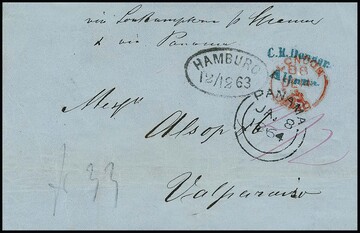 via Southampton p Steamer
& via Panama
C.H. Donner
Altona
HAMBURG
12/12 63
LONDON
PANAMA
JA 8
64
Messrs
Alsop & Co
Valparaiso
33